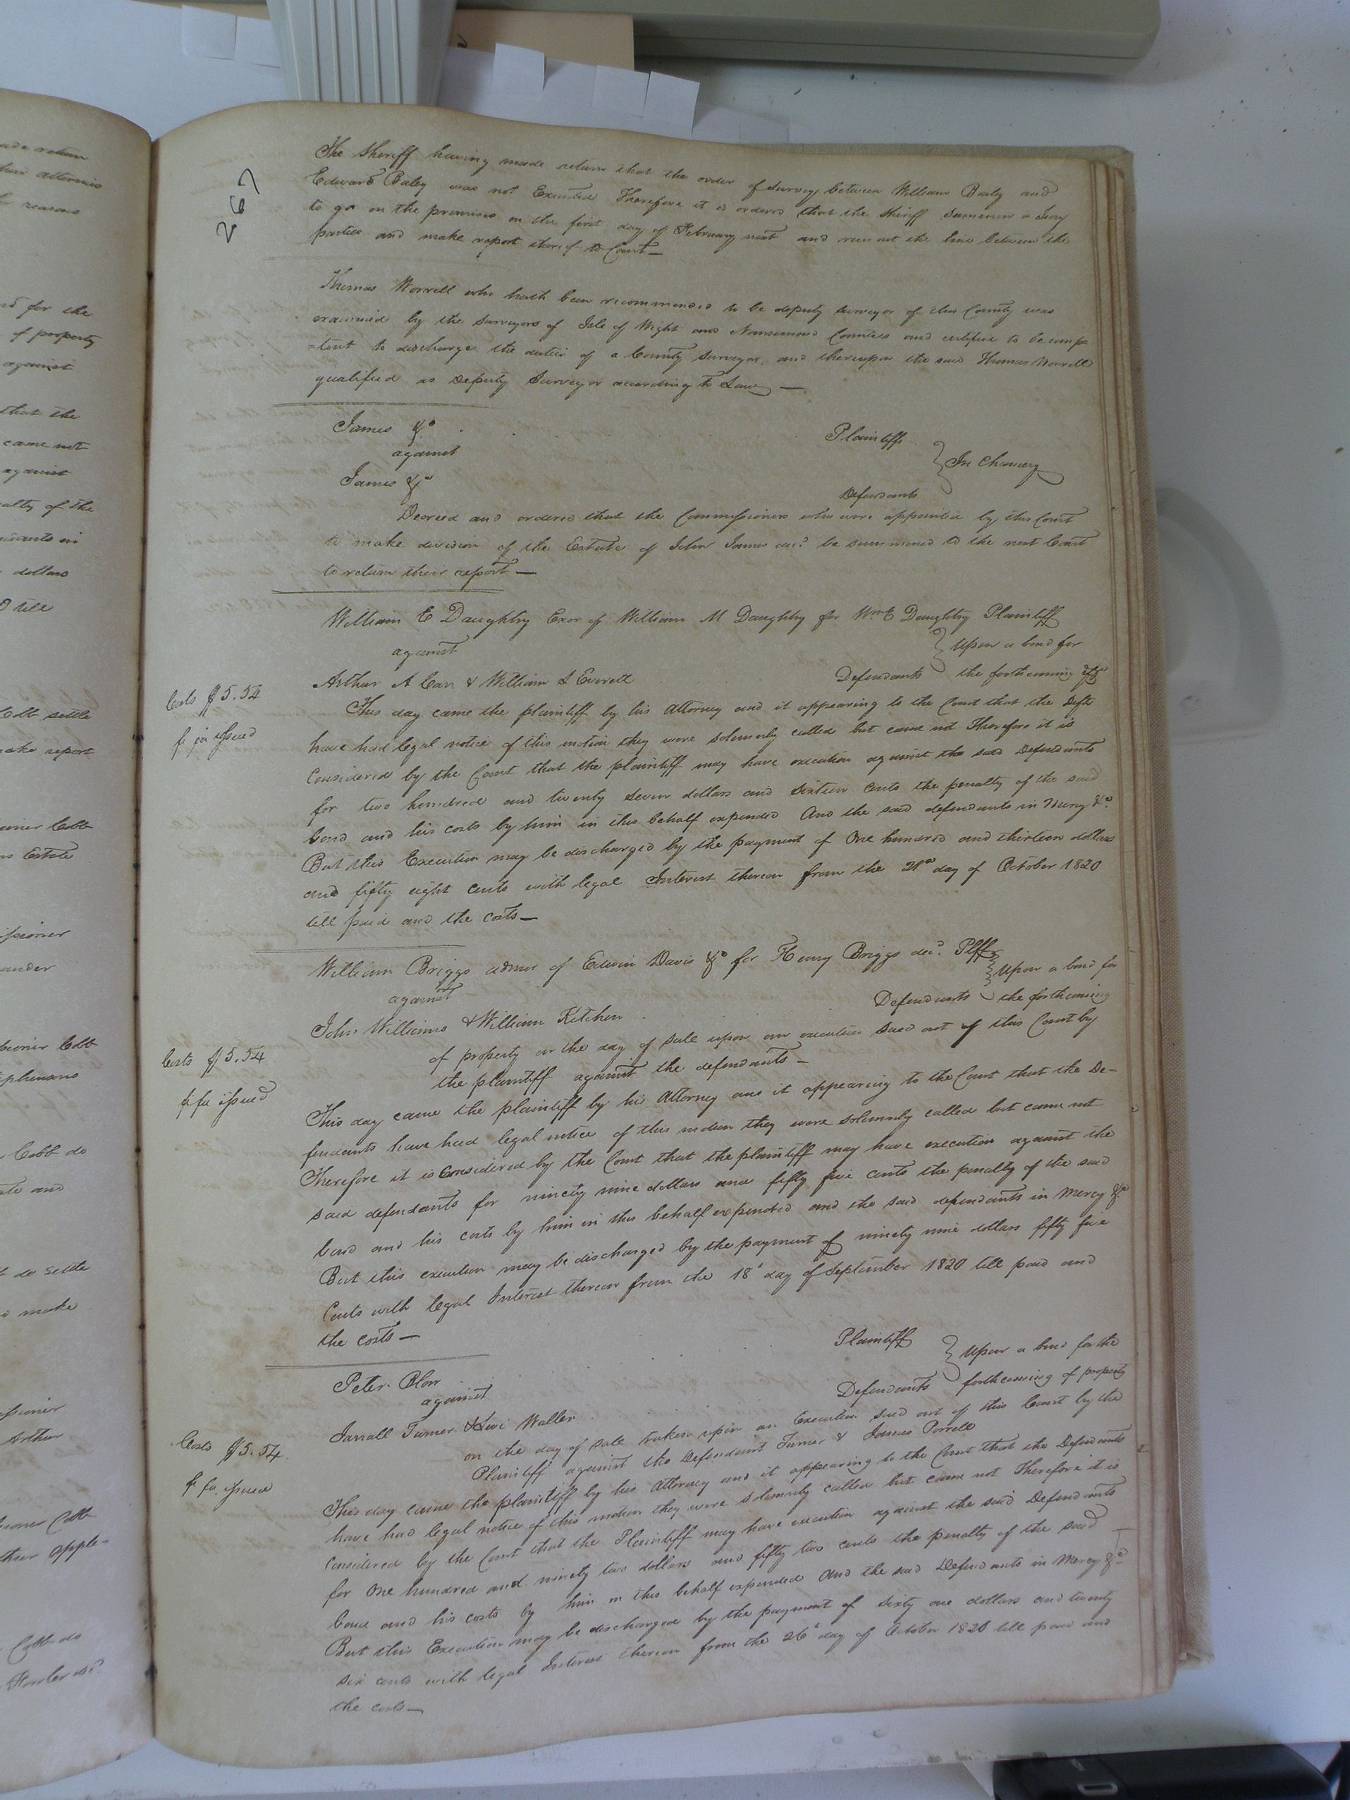 267
The Sheriff having made return that the order of Survey between William Baily and
Edward Baley was not Executed Therefore it is orderd that the Sheriff Summon a Jury
to go on the premises on the first day of February next and run out the line between the
parties and make report thereof to Court —
Thomas Worrell who hath been recommended to be deputy surveyor of this County was
examined by the Surveyors of Isle of Wight and Nansemond Counties and certified to be comp
-etent to discharge the duties of a County Surveyor, and thereupon the said Thomas Worrell
qualified as Deputy Surveyor according to Law —
James &c.
Plaintiffs
against
In Chancery
James &c
Defendants
Decreed and ordered that the Commissioners who were appointed by this Court
to make division of the Estate of John James decd. be summoned to the next Court
to return their report —
William E Daughtry Exor of William M Daughtry for Wm. E Daughtry Plaintiff
against
Upon a bond for
Arthur A Carr & William S Everett
Defendants
the forthcoming &c
Costs $5.54
fi fa issued
This day came the plaintiff by his Attorney and it appearing to the Court that the Defts
have had legal notice of this motion they were solemnly called but came not Therefore it is
Considered by the Court that the plaintiff may have execution against the said Defendants
for two hundred and twenty seven dollars and sixteen cents the penalty of the said
bond and his costs by him in this behalf expended And the said defendants in Mercy &c.
But this Execution may be discharged by the payment of One hundred and thirteen dollars
and fifty eight cents with legal Interest thereon from the 21st day of October 1820
till paid and the costs —
William Briggs admor of Edwin Davis &c for Henry Briggs decd. Plff
against
Upon a bond for
John Williams & William Kitchen
Defendants
the forthcoming
Costs $5.54
fi fa issued
of property on the day of sale upon an execution sued out of this Court by
the plaintiff against the defendants —
This day came the plaintiff by his Attorney and it appearing to the Court that the De-
fendants have had legal notice of this motion they were solemnly called but came not
Therefore it is Considered by the Court that the plaintiff may have execution against the
said defendants for ninety nine dollars and fifty five cents the penalty of the said
bond and his costs by him in this behalf expended and the said defendants in Mercy &c
But this execution may be discharged by the payment of ninety nine dollars fifty five
Cents with legal Interest thereon from the 18th day of September 1820 till paid and
the costs —
Peter Blow
Plaintiff
against
Upon a bond for the
Jarrall Turner & Levi Waller
Defendants
forthcoming of property
Costs $5.54.
fi fa. issued
on the day of sale taken upon an Execution sued out of this Court by the
Plaintiff against the Defendant Turner & James Porrell
This day came the plaintiff by his Attorney and it appearing to the Court that the Defendants
have had legal notice of this motion they were solemnly called but came not Therefore it is
Considered by the Court that the Plaintiff may have execution against the said Defendants
for One hundred and ninety two dollars and fifty two cents the penalty of the said
bond and his costs by him in this behalf expended And the said Defendants in Mercy &c
But this Execution may be discharged by the payment of sixty one dollars and twenty
six cents with legal Interest thereon from the 26th day of October 1820 till paid and
the costs —